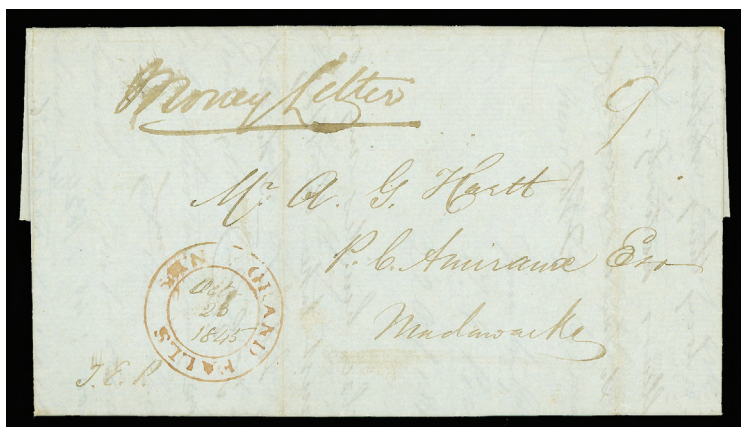 Money Letter
9
Mr. A. G. Hartt
P. C. Amiraux Esqr
Madawaska
GRAND FALLS
Oct.
26
1845
J. E. P.